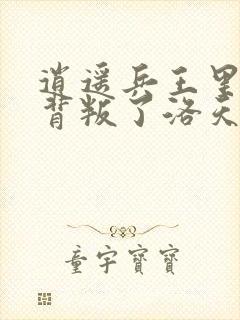 逍遥兵王里
背叛了洛天
童宇寶寶